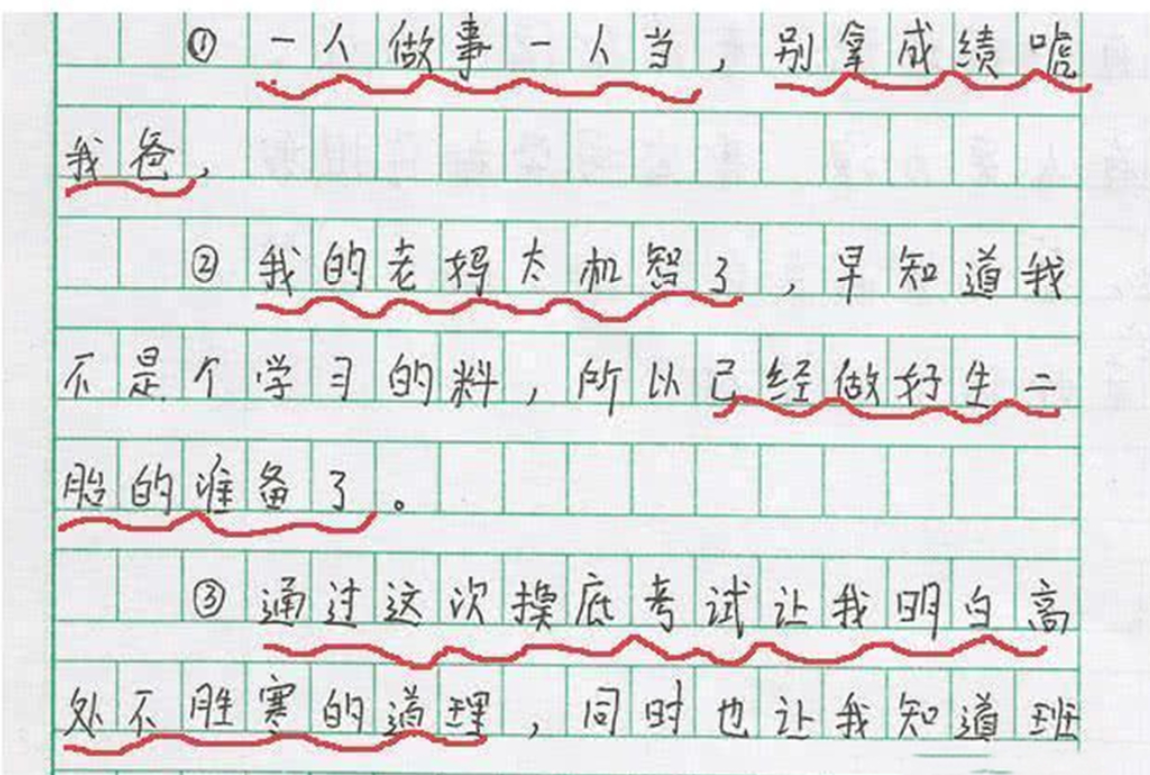 ① 一人做事一人当，别拿成绩唬
我爸，
② 我的老妈太机智了，早知道我
不是个学习的料，所以已经做好生二
胎的准备了。
③ 通过这次摸底考试让我明白高
处不胜寒的道理，同时也让我知道班